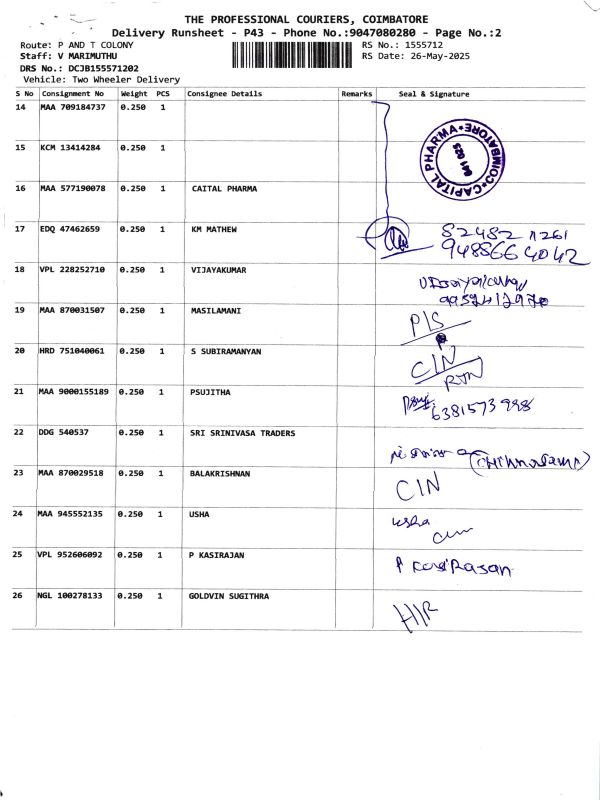 THE PROFESSIONAL COURIERS, COIMBATORE
Delivery Runsheet - P43 - Phone No.:9047080280 - Page No.:2
Route: P AND T COLONY
RS No.: 1555712
Staff: V MARIMUTHU
RS Date: 26-May-2025
DRS No.: DCJB155571202
Vehicle: Two Wheeler Delivery
S No Consignment No Weight PCS Consignee Details Remarks Seal & Signature
14 MAA 709184737 0.250 1
CAPITAL PHARMA COIMBATORE 641 025
15 KCM 13414284 0.250 1
16 MAA 577190078 0.250 1 CAITAL PHARMA
17 EDQ 47462659 0.250 1 KM MATHEW
9488664042
18 VPL 228252710 0.250 1 VIJAYAKUMAR
19 MAA 870031507 0.250 1 MASILAMANI P/S
20 HRD 751040061 0.250 1 S SUBIRAMANYAN C/N
RTN
21 MAA 9000155189 0.250 1 PSUJITHA
22 DDG 540537 0.250 1 SRI SRINIVASA TRADERS
23 MAA 870029518 0.250 1 BALAKRISHNAN C/N
24 MAA 945552135 0.250 1 USHA usha
25 VPL 952606092 0.250 1 P KASIRAJAN P
26 NGL 100278133 0.250 1 GOLDVIN SUGITHRA H/R